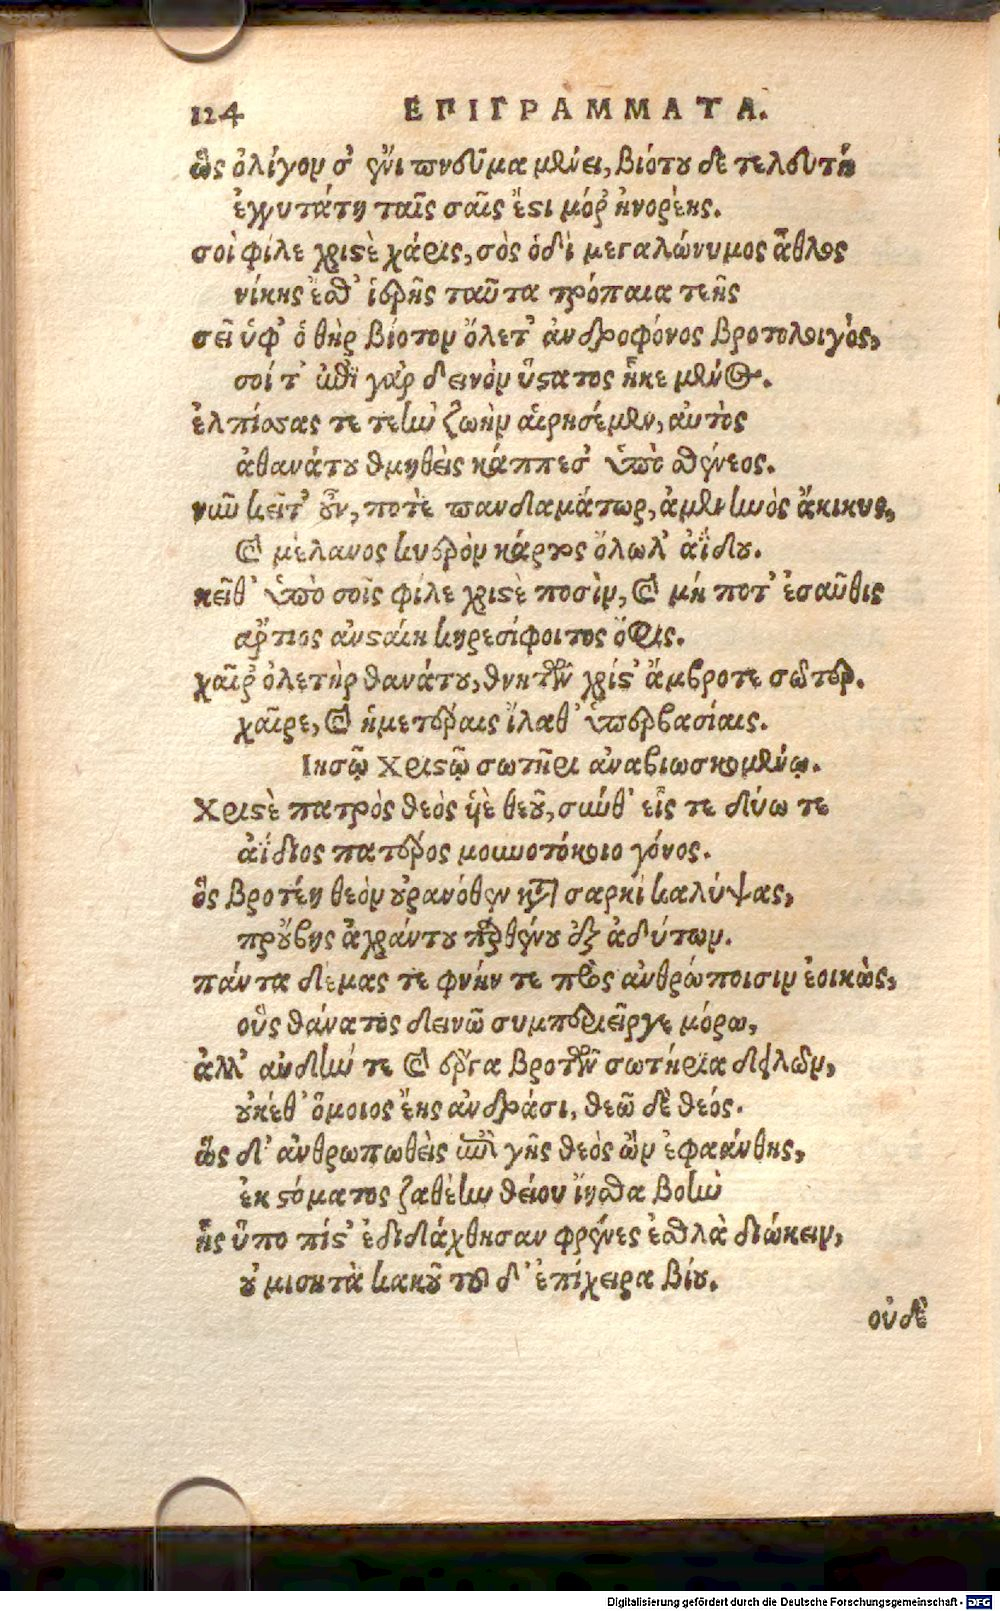 124 ΕΠΙΓΡΑΜΜΑΤΑ.
ὣς ὀλίγον σ' ἔνι πνεῦμα μένει, βιότου δὲ τελευτὴ
ἐγγυτάτη ταῖς σαῖς ἔστι μόρ' ἠνορέης.
σοὶ φίλε χριστὲ χάρις, σὸς ὁδὶ μεγαλώνυμος ἆθλος
νίκης ἔσθ' ἱερῆς ταῦτα τρόπαια τεῆς
σεῖ ὑφ' ὁ θὴρ βίοτον ὄλετ' ἀνδροφόνος βροτολοιγὸς,
σοί τ' ἐπὶ γὰρ δεινὸν ὕστατος ἧκε μένος.
ἐλπίσας τε τεὴν ζωὴν αἱρησέμεν, αὐτὸς
ἀθανάτου δμηθεὶς κάππεσ' ὑπὸ σθένεος.
νῦν κεῖτ' οὖν, ποτὲ πανδαμάτωρ, ἀμενηνὸς ἄκικυς,
καὶ μέλανος κυδρὸν κάρτος ὄλωλ' ἀΐδου.
κεῖθ' ὑπὸ σοῖς φίλε χριστὲ ποσὶν, καὶ μή ποτ' ἐσαῦθις
ἄρτιος ἀνσταίη κηρεσίφοιτος ὄφις.
χαῖρ' ὀλετὴρ θανάτου, θνητῶν χρίστ' ἄμβροτε σῶτερ.
χαῖρε, καὶ ἡμετέραις ἵλαθ' ὑπερβασίαις.
Ιησῷ Χριστῷ σωτῆρι ἀναβιωσκομένῳ.
Χριστὲ πατρὸς θεὸς ἠὲ θεοῦ, σύνθ' εἷς τε δύω τε
ἀΐδιος πατέρος μουνοτόκοιο γόνος.
ὃς βροτέῃ θεὸν οὐρανόθεν κατὰ σαρκὶ καλύψας,
προὔβης ἀχράντου παρθένου ἐξ ἀδύτων.
πάντα δέμας τε φυήν τε πρὸς ἀνθρώποισιν ἐοικὼς,
οὓς θάνατος δεινῶ συμπεριεῖργε μόρω,
ἀλλ' αὐδήν τε καὶ ἔργα βροτῶν σωτήρια δηλῶν,
οὐκέθ' ὅμοιος ἔης ἀνδράσι, θεῶ δὲ θεός.
ὣς δ' ἀνθρωπωθεὶς ἐπὶ γῆς θεὸς ὢν ἐφαάνθης,
ἐκ στόματος ζαθέην θεῖον ἵησθα βοὴν
ἧς ὕπο πίστ' ἐδιδάχθησαν φρένες ἐσθλὰ διώκειν,
οὐ μισητὰ κακοῦ τοῦ δ' ἐπίχειρα βίου.
οὐδὲ
Digitalisierung gefördert durch die Deutsche Forschungsgemeinschaft - DFG